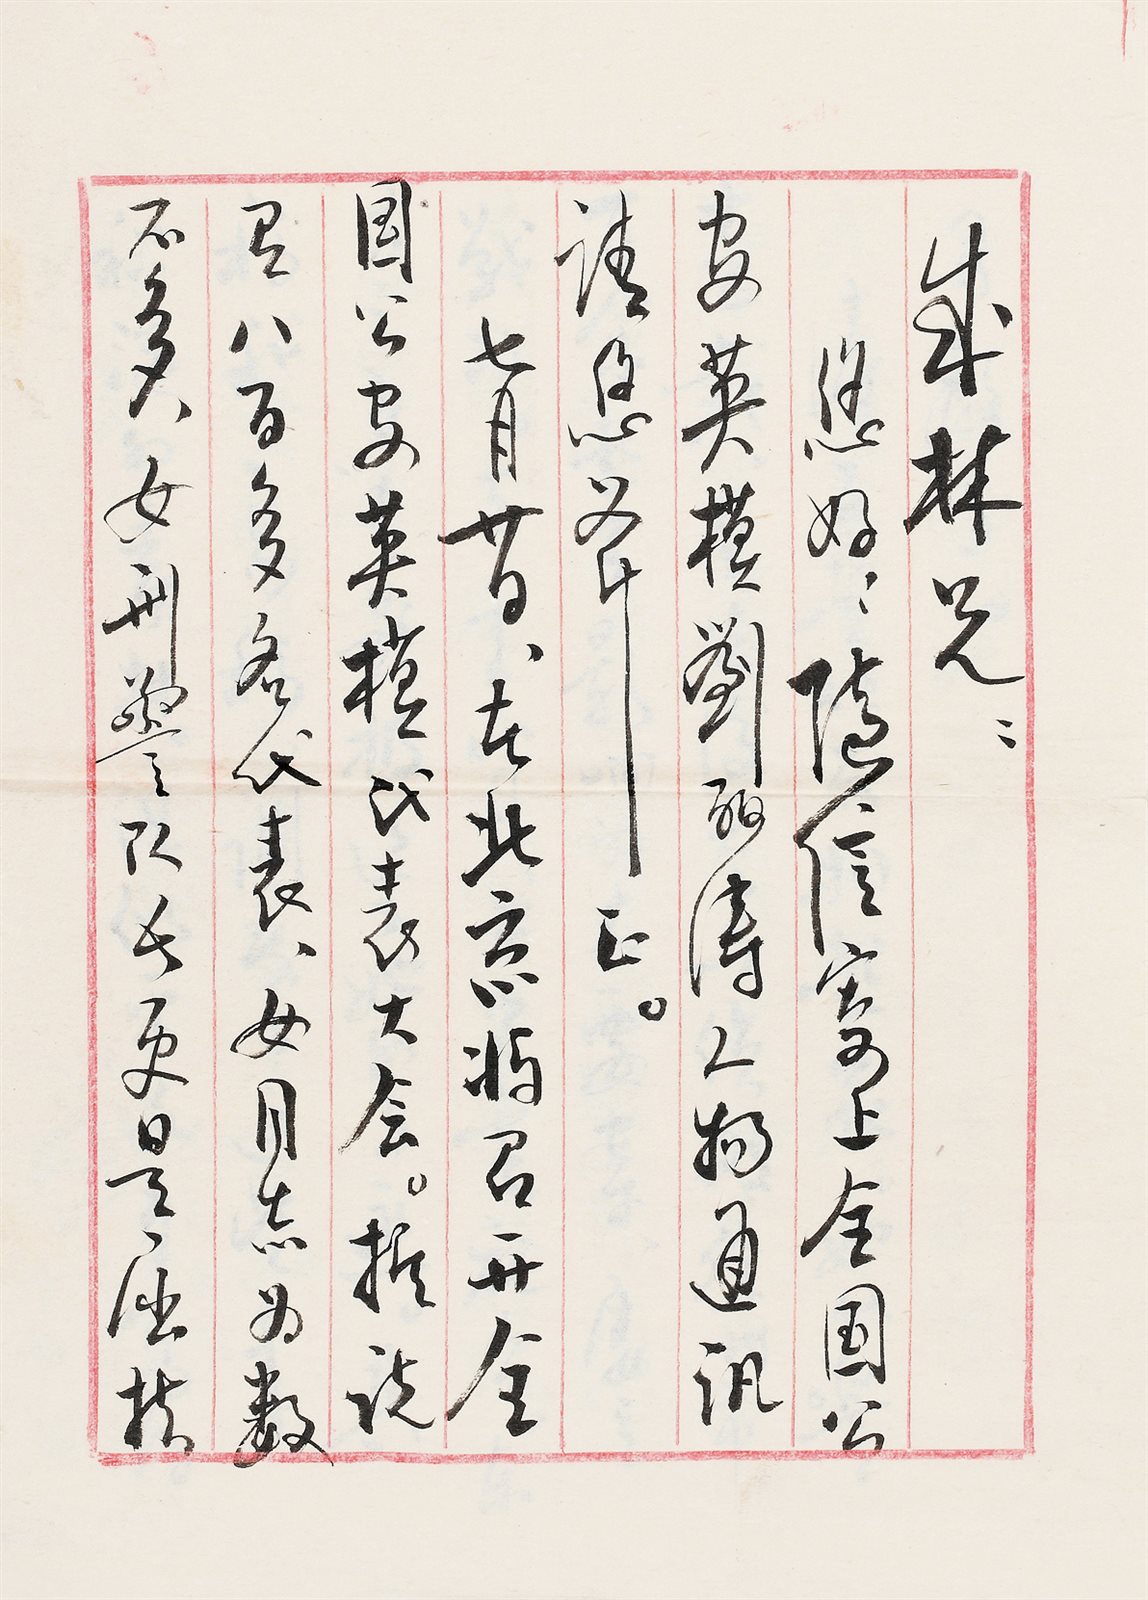 成林兄：
您好：随信寄上全国公
安英模劉丽涛人物通讯
请您斧正。
七月廿日、在北京将召开全
国公安英模代表大会。据说
八百多名代表、女同志为数
不多、女刑警队长更是屈指